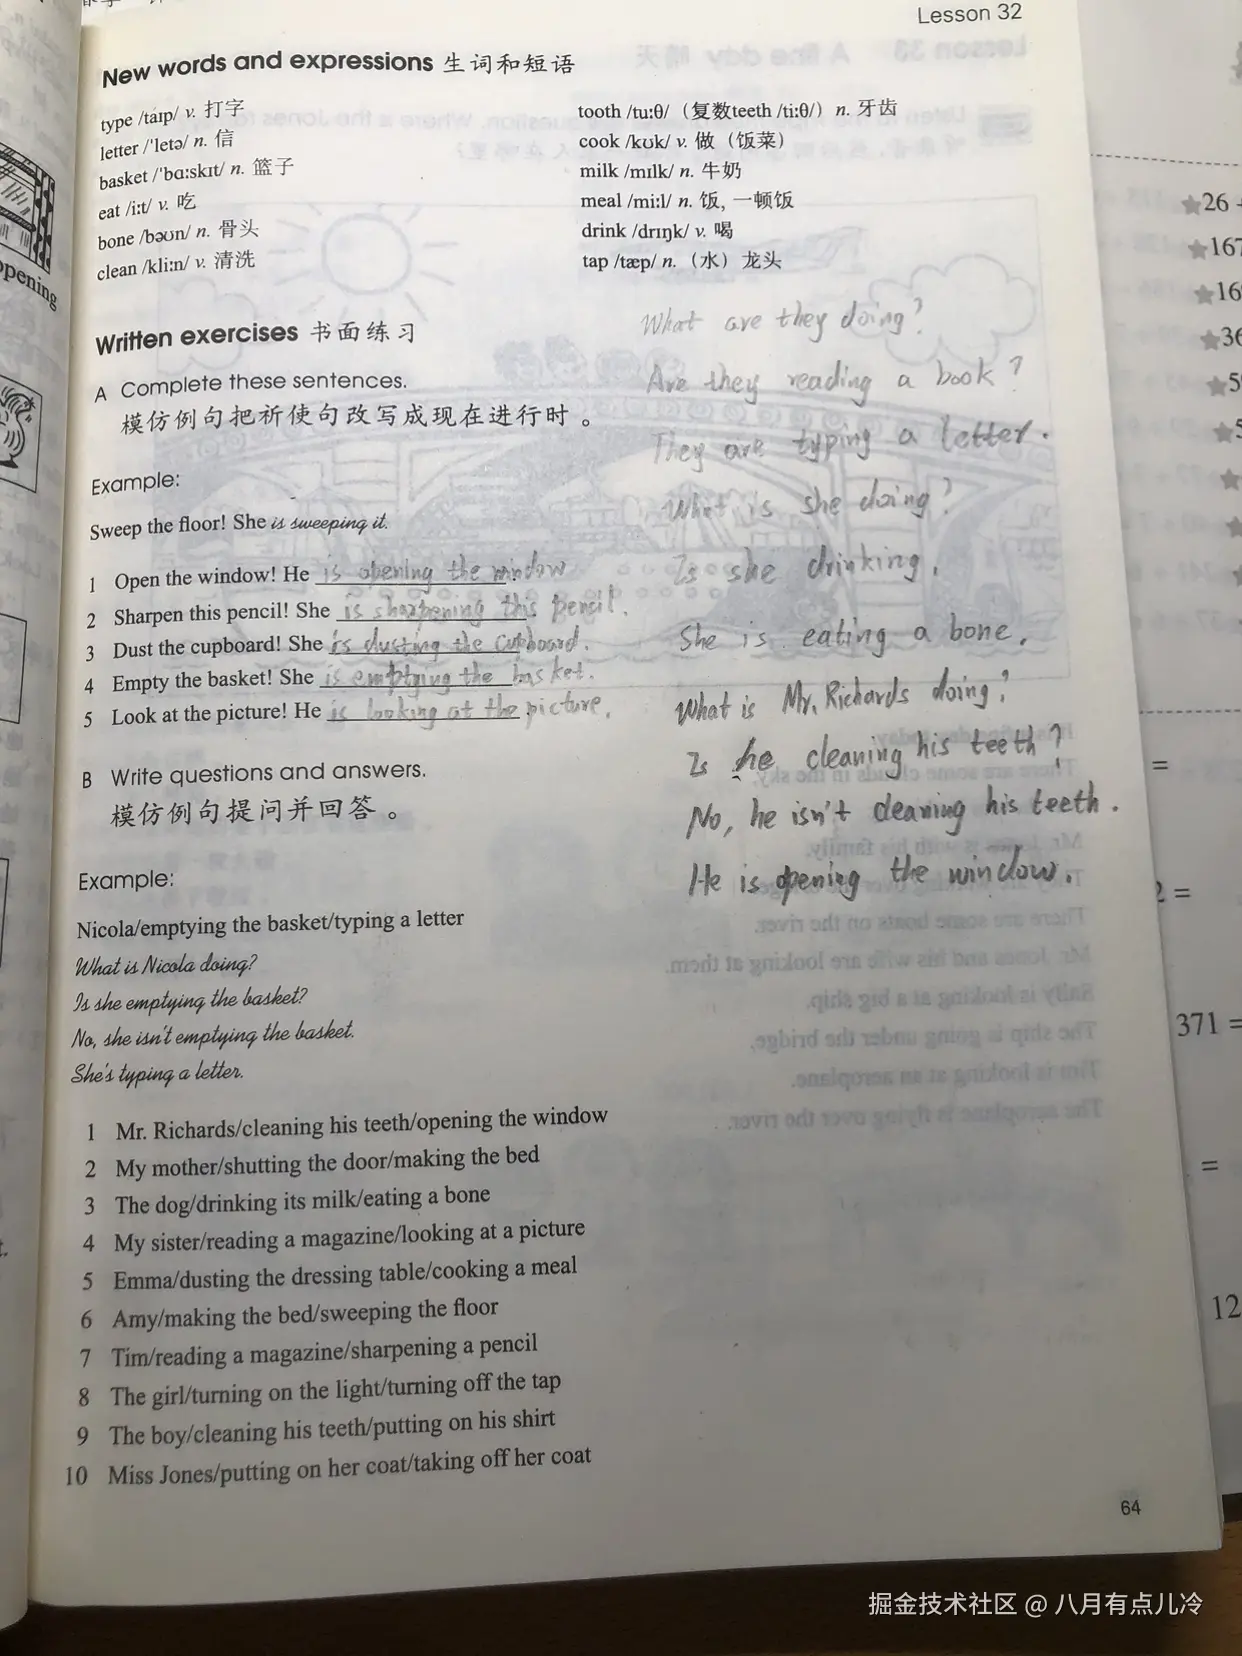 Lesson 32
New words and expressions 生词和短语
type /taɪp/ v. 打字
letter /ˈletə/ n. 信
basket /ˈbɑːskɪt/ n. 篮子
eat /iːt/ v. 吃
bone /bəʊn/ n. 骨头
clean /kliːn/ v. 清洗
tooth /tuːθ/（复数teeth /tiːθ/）n. 牙齿
cook /kʊk/ v. 做（饭菜）
milk /mɪlk/ n. 牛奶
meal /miːl/ n. 饭, 一顿饭
drink /drɪŋk/ v. 喝
tap /tæp/ n.（水）龙头
Written exercises 书面练习
A Complete these sentences.
模仿例句把祈使句改写成现在进行时。
Example:
Sweep the floor! She is sweeping it.
1 Open the window! He is opening the window
2 Sharpen this pencil! She is sharpening this pencil.
3 Dust the cupboard! She is dusting the cupboard.
4 Empty the basket! She is emptying the basket.
5 Look at the picture! He is looking at the picture.
B Write questions and answers.
模仿例句提问并回答。
Example:
Nicola/emptying the basket/typing a letter
What is Nicola doing?
Is she emptying the basket?
No, she isn't emptying the basket.
She's typing a letter.
1 Mr. Richards/cleaning his teeth/opening the window
2 My mother/shutting the door/making the bed
3 The dog/drinking its milk/eating a bone
4 My sister/reading a magazine/looking at a picture
5 Emma/dusting the dressing table/cooking a meal
6 Amy/making the bed/sweeping the floor
7 Tim/reading a magazine/sharpening a pencil
8 The girl/turning on the light/turning off the tap
9 The boy/cleaning his teeth/putting on his shirt
10 Miss Jones/putting on her coat/taking off her coat
What are they doing?
Are they reading a book?
They are typing a letter.
What is she doing?
Is she drinking.
She is eating a bone.
What is Mr. Richards doing?
Is he cleaning his teeth?
No, he isn't cleaning his teeth.
He is opening the window.
64
opening
26
167
36
371 =
12
掘金技术社区 @ 八月有点儿冷